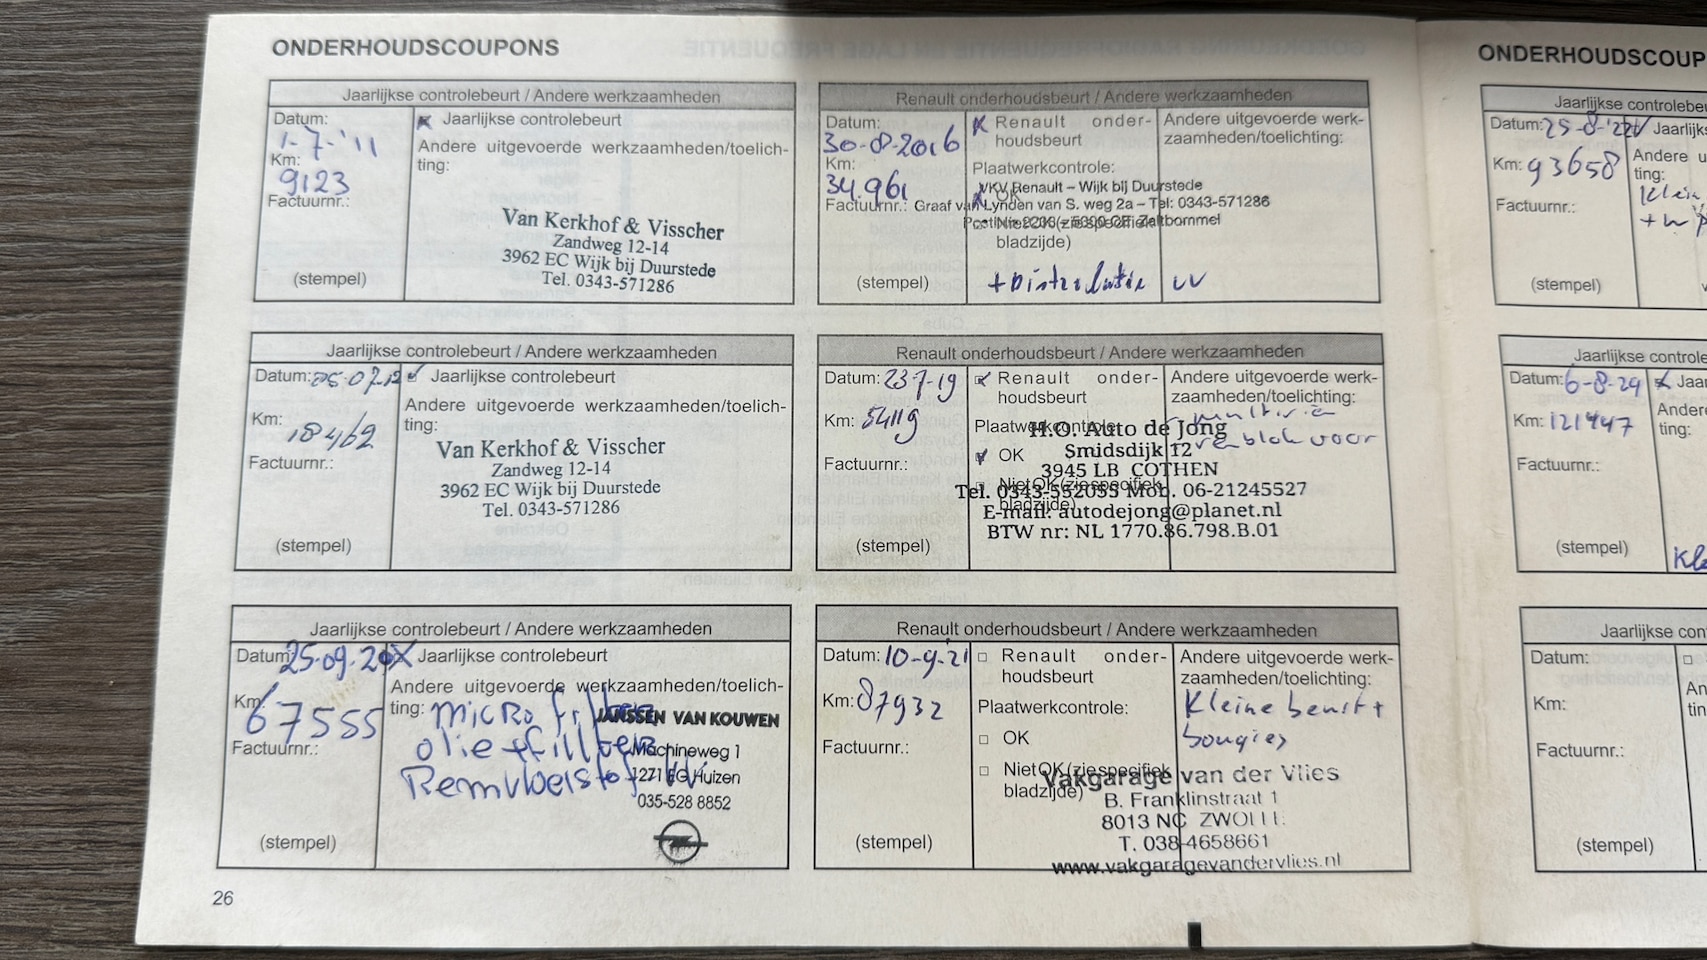 ONDERHOUDSCOUPONS
Jaarlijkse controlebeurt / Andere werkzaamheden
Datum:
1-7-'11
Km:
9123
Factuurnr.:
(stempel)
Jaarlijkse controlebeurt
Andere uitgevoerde werkzaamheden/toelich-
ting:
Van Kerkhof & Visscher
Zandweg 12-14
3962 EC Wijk bij Duurstede
Tel. 0343-571286
Jaarlijkse controlebeurt / Andere werkzaamheden
Datum: 05-07-12
Km:
18462
Factuurnr.:
(stempel)
Jaarlijkse controlebeurt
Andere uitgevoerde werkzaamheden/toelich-
ting:
Van Kerkhof & Visscher
Zandweg 12-14
3962 EC Wijk bij Duurstede
Tel. 0343-571286
Jaarlijkse controlebeurt / Andere werkzaamheden
Datum: 25-09-20
Km:
67555
Factuurnr.:
(stempel)
Jaarlijkse controlebeurt
Andere uitgevoerde werkzaamheden/toelich-
ting: Micro filter
olie + fillter
Remvloeistof VV
JANSSEN VAN KOUWEN
Machineweg 1
1271 EG Huizen
035-528 8852
26
Renault onderhoudsbeurt / Andere werkzaamheden
Datum:
30-8-2016
Km:
34.961
Factuurnr.:
(stempel)
Renault onder-
houdsbeurt
Plaatwerkcontrole:
OK
Niet OK (zie specifiek
bladzijde)
Andere uitgevoerde werk-
zaamheden/toelichting:
VKV Renault – Wijk bij Duurstede
Graaf van Lynden van S. weg 2a – Tel: 0343-571286
Zaltbommel
+ Distributie VV
Renault onderhoudsbeurt / Andere werkzaamheden
Datum: 23-7-19
Km: 54119
Factuurnr.:
(stempel)
Renault onder-
houdsbeurt
Plaatwerkcontrole:
OK
Niet OK (zie specifiek
bladzijde)
Andere uitgevoerde werk-
zaamheden/toelichting:
multiriem
remblok voor
H.O. Auto de Jong
Smidsdijk 12
3945 LB COTHEN
Tel. 0343-552055 Mob. 06-21245527
E-mail: autodejong@planet.nl
BTW nr: NL 1770.86.798.B.01
Renault onderhoudsbeurt / Andere werkzaamheden
Datum: 10-9-21
Km: 87932
Factuurnr.:
(stempel)
Renault onder-
houdsbeurt
Plaatwerkcontrole:
OK
Niet OK (zie specifiek
bladzijde)
Andere uitgevoerde werk-
zaamheden/toelichting:
Kleine beurt +
bougies
Vakgarage van der Vlies
B. Franklinstraat 1
8013 NC ZWOLLE
T. 038-4658661
www.vakgaragevandervlies.nl
ONDERHOUDSCOUP
Jaarlijkse controlebeu
Datum: 25-8-'22
Km: 93658
Factuurnr.:
(stempel)
Jaarlijks
Andere u
ting:
Klein
Jaarlijkse controle
Datum: 6-8-24
Km: 121447
Factuurnr.:
(stempel)
Jaar
Andere
ting:
Kle
Jaarlijkse con
Datum:
Km:
Factuurnr.:
(stempel)
An
tin